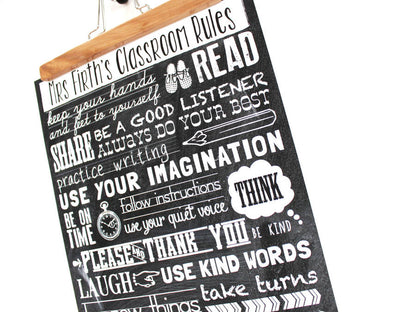 Mrs Firth's Classroom Rules
keep your hands
and feet to yourself
READ
SHARE
BE A GOOD LISTENER
ALWAYS DO YOUR BEST
practice writing
USE YOUR IMAGINATION
BE ON
TIME
follow instructions
use your quiet voice
THINK
PLEASE AND THANK YOU
BE KIND
LAUGH
USE KIND WORDS
things
take turns